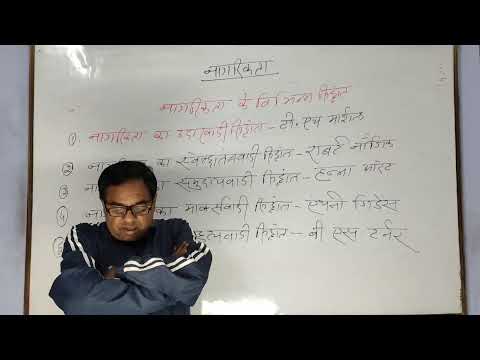 नागरिकता
नागरिकता के विभिन्न सिद्धांत
① नागरिकता का उदारवादी सिद्धांत - टी. एच मार्शल
② का स्वेच्छातंत्रवादी सिद्धांत - राबर्ट नॉजिक
③ का समुदायवादी सिद्धांत - हन्ना
④ का मार्क्सवादी सिद्धांत - एंथनी गिडेंस
सिद्धांत - बी एस टर्नर